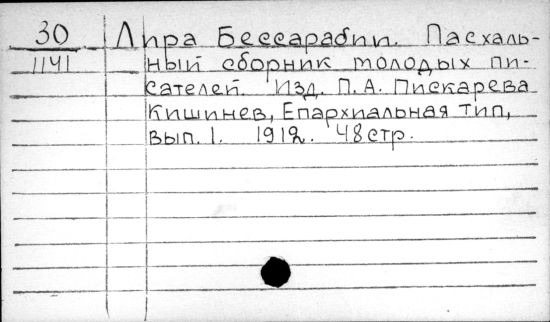 30 Лира Бессарабии. Пасхаль-
1141 ный сборник молодых пи-
сателей. Изд. П. А. Пискарева
Кишинев, Епархиальная тип,
вып. 1. 1912. 48 стр.